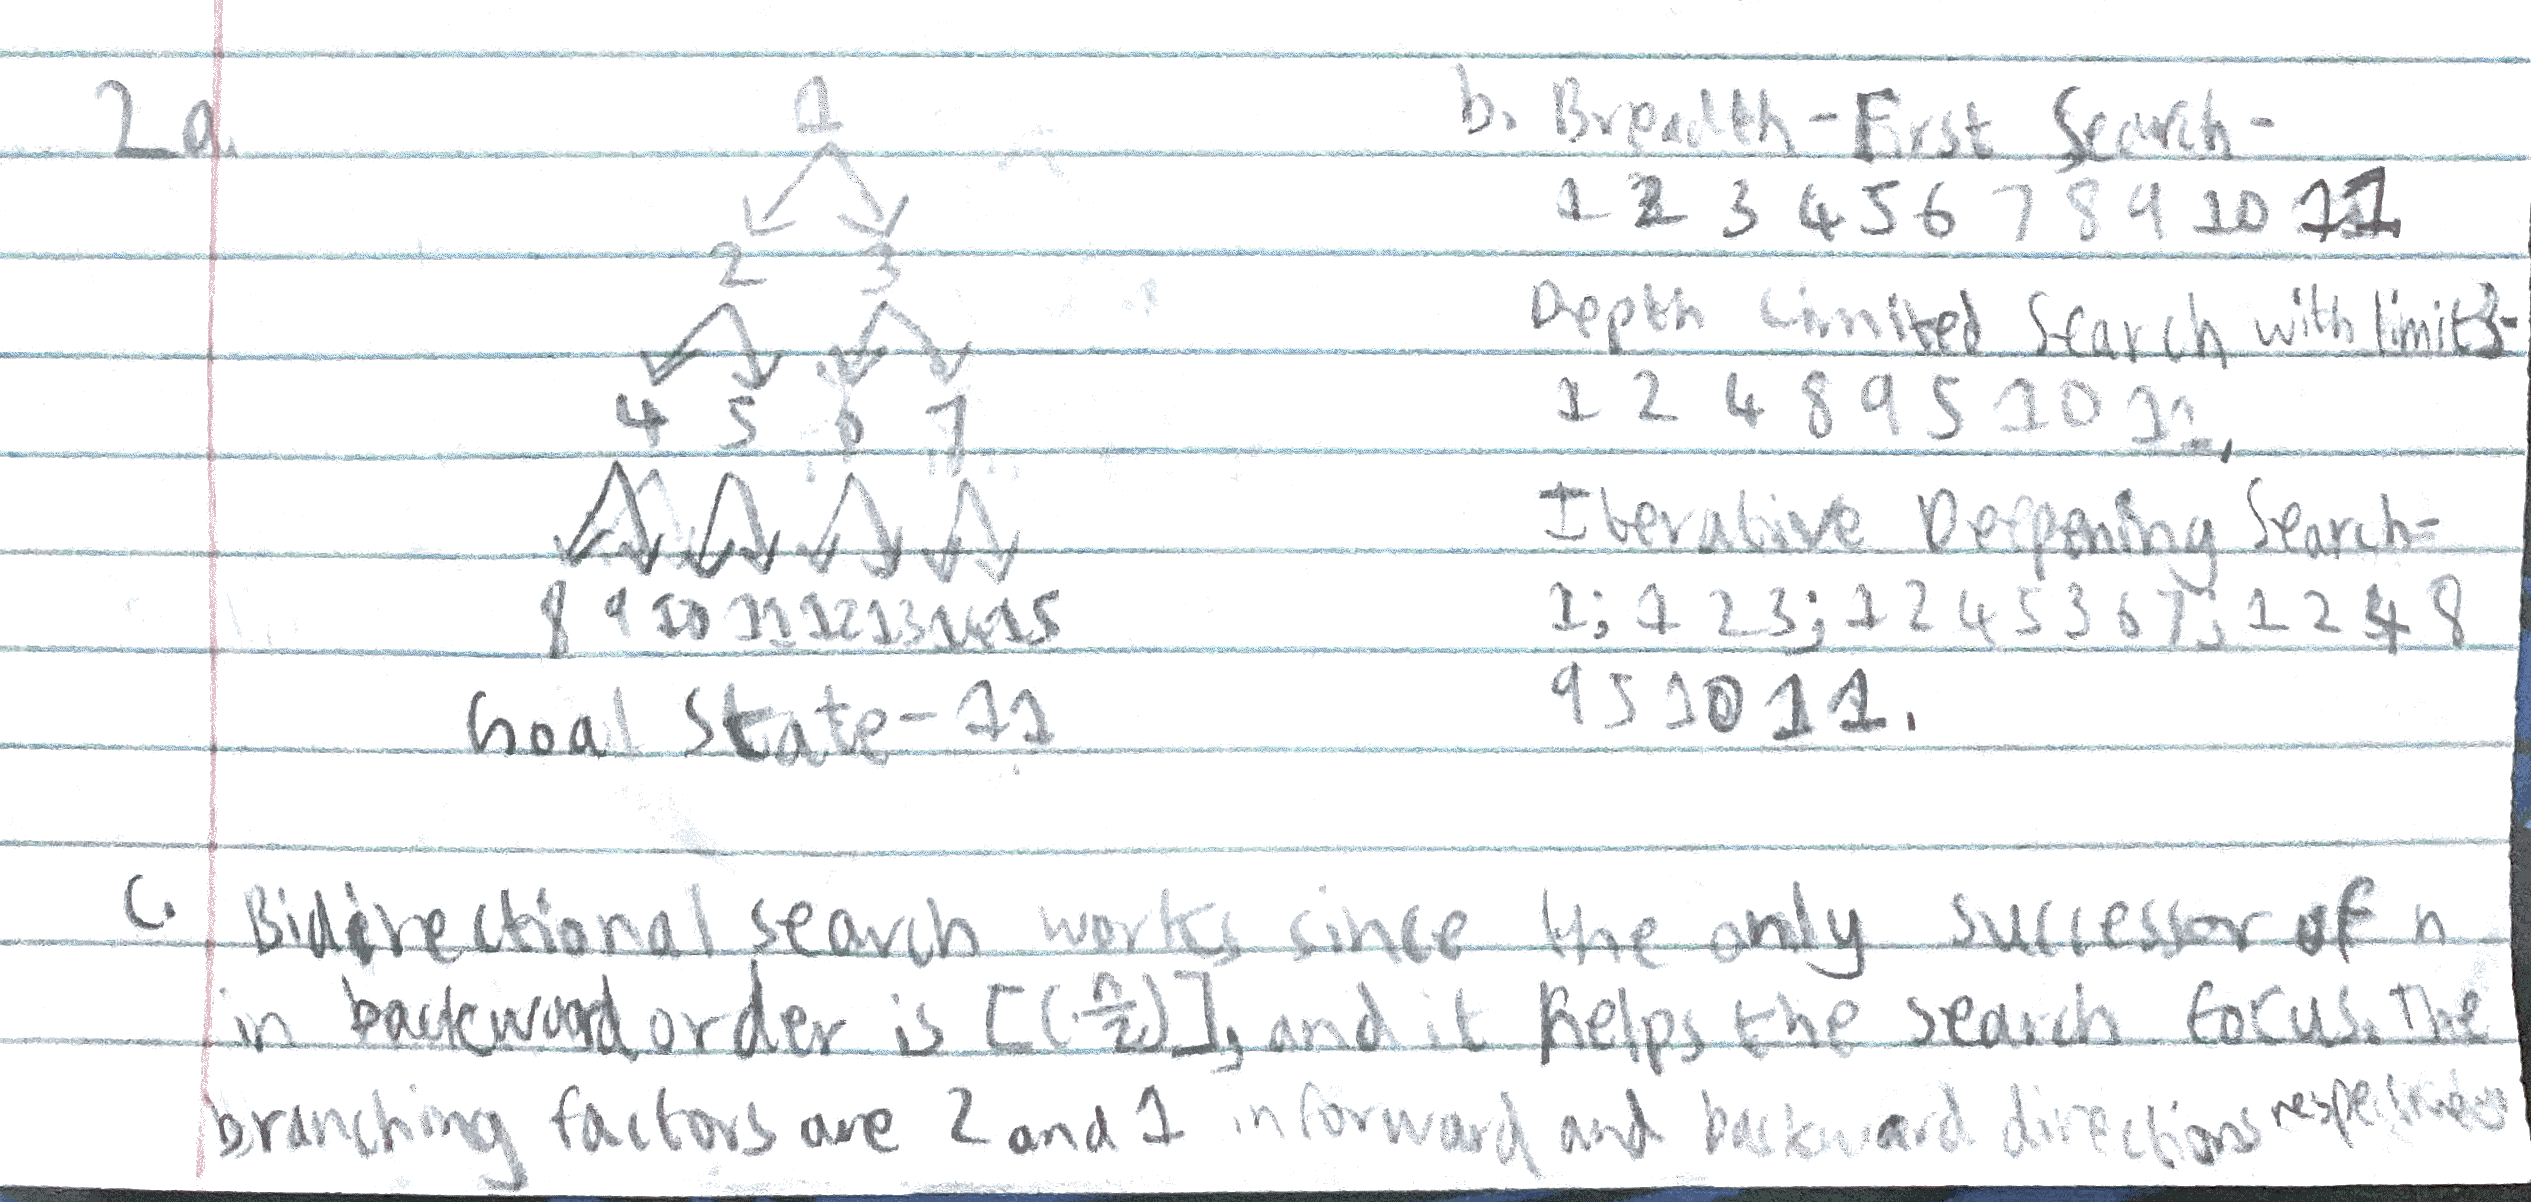 2a.
1
2 3
4 5 6 7
8 9 10 11 12 13 14 15
Goal State - 11
b. Breadth-First Search-
1 2 3 4 5 6 7 8 9 10 11
Depth Limited Search with limit 3-
1 2 4 8 9 5 10 11,
Iterative Deepening Search-
1; 1 2 3; 1 2 4 5 3 6 7; 1 2 4 8
9 5 10 11.
C. Bidirectional search works since the only successor of n
in backward order is [(n/2)], and it helps the search focus. The
branching factors are 2 and 1 in forward and backward directions respectively